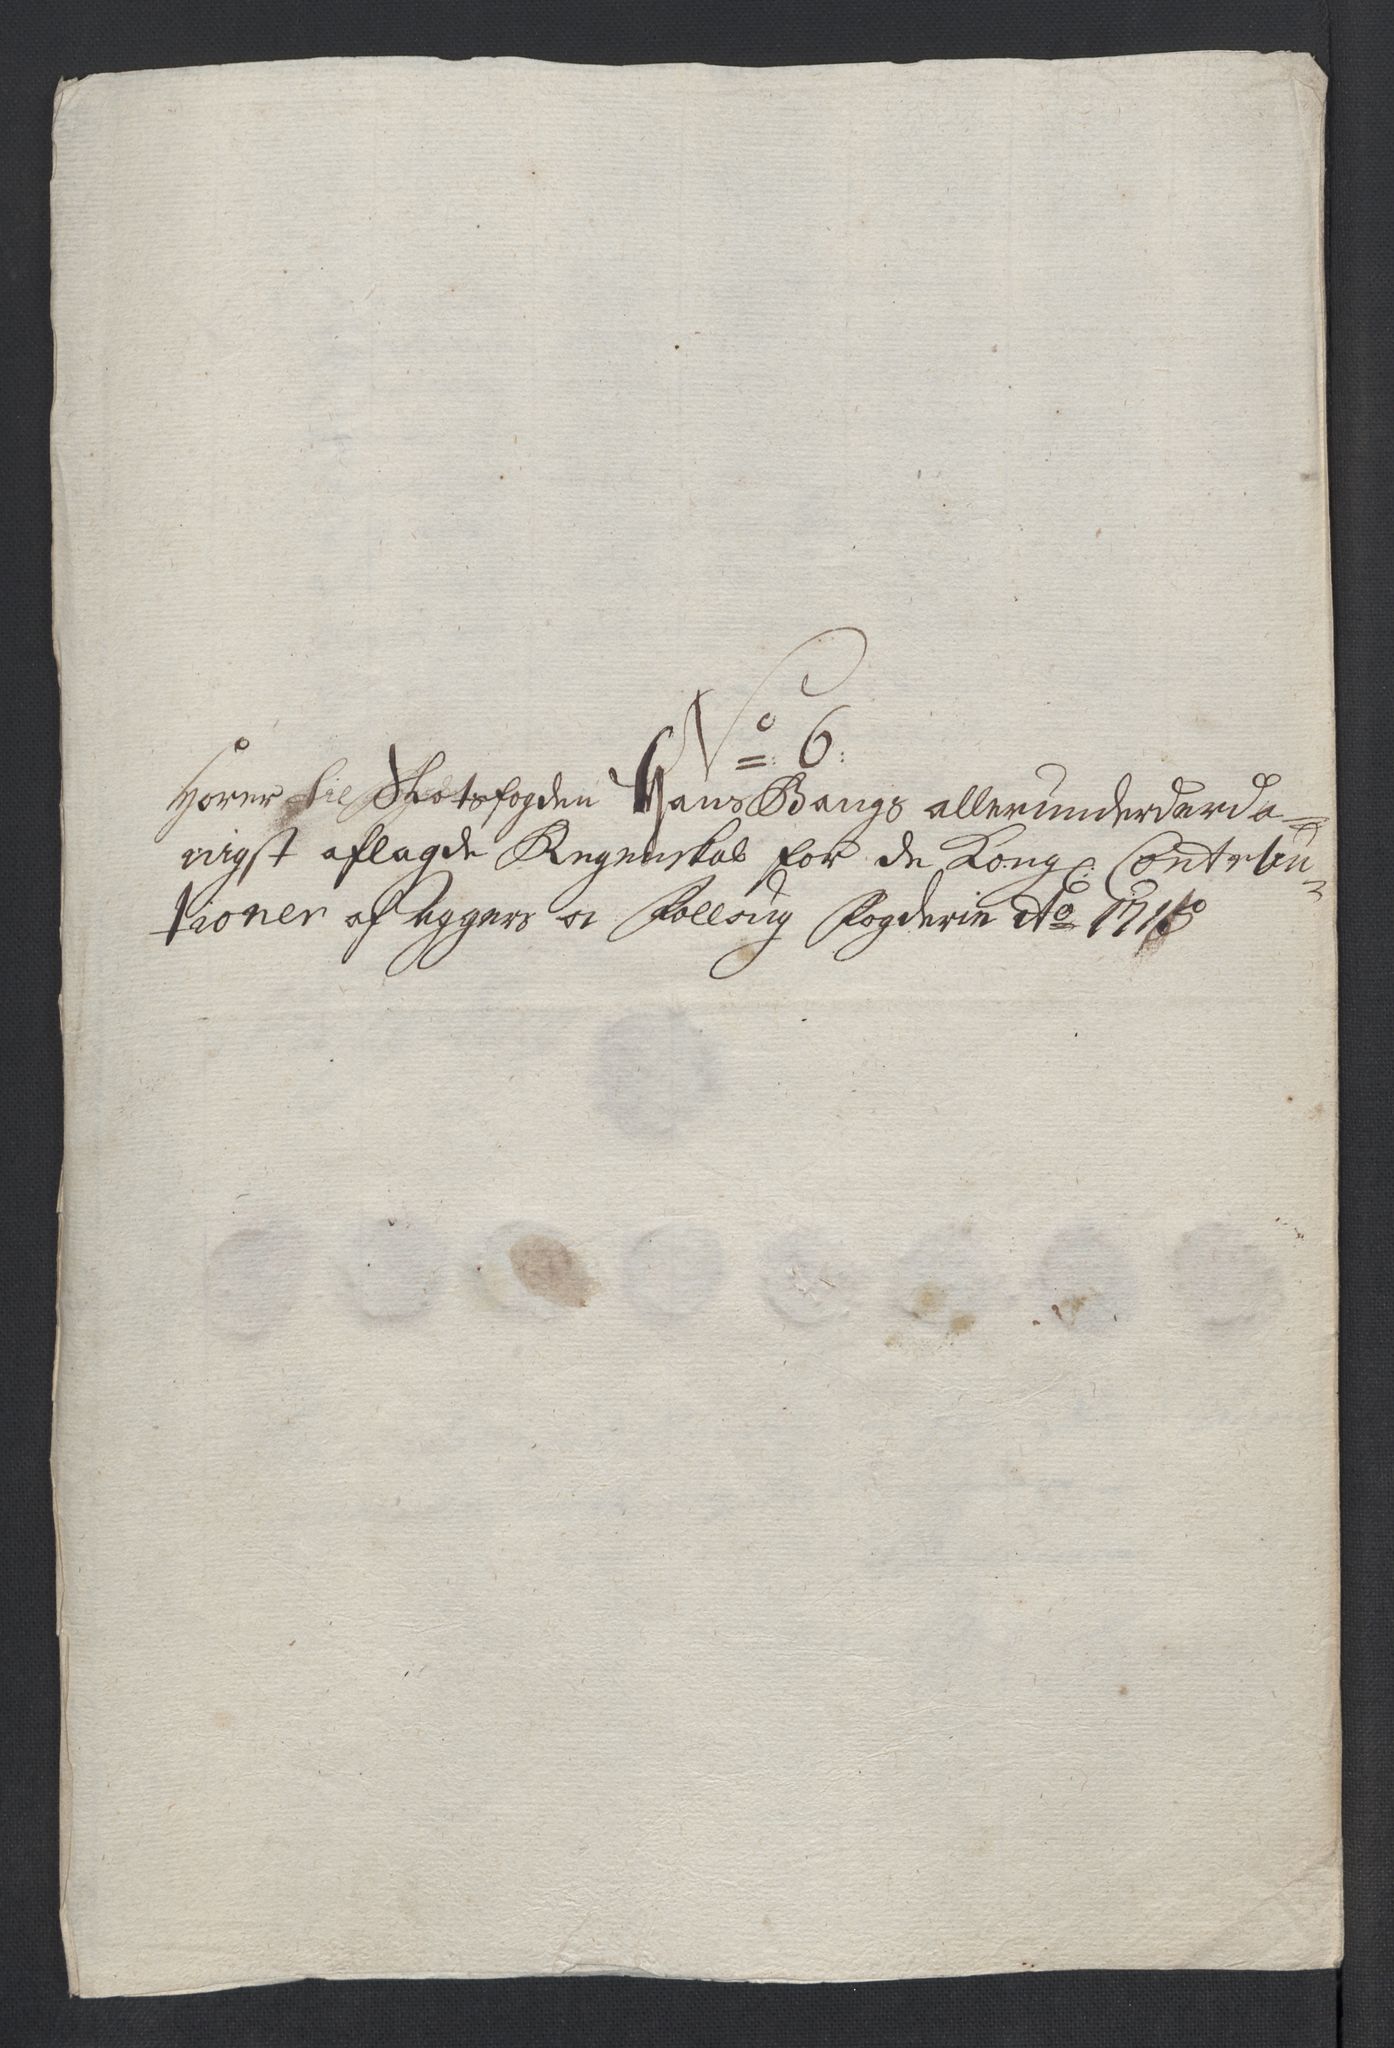 No 6.
Hörer til Slotsfogden Hans Bangs allerunderdanda=
nigst aflagde Regenskab for de Kongl: Contribu=
tioner af Aggers og Folloug Fogderie Ao 1716